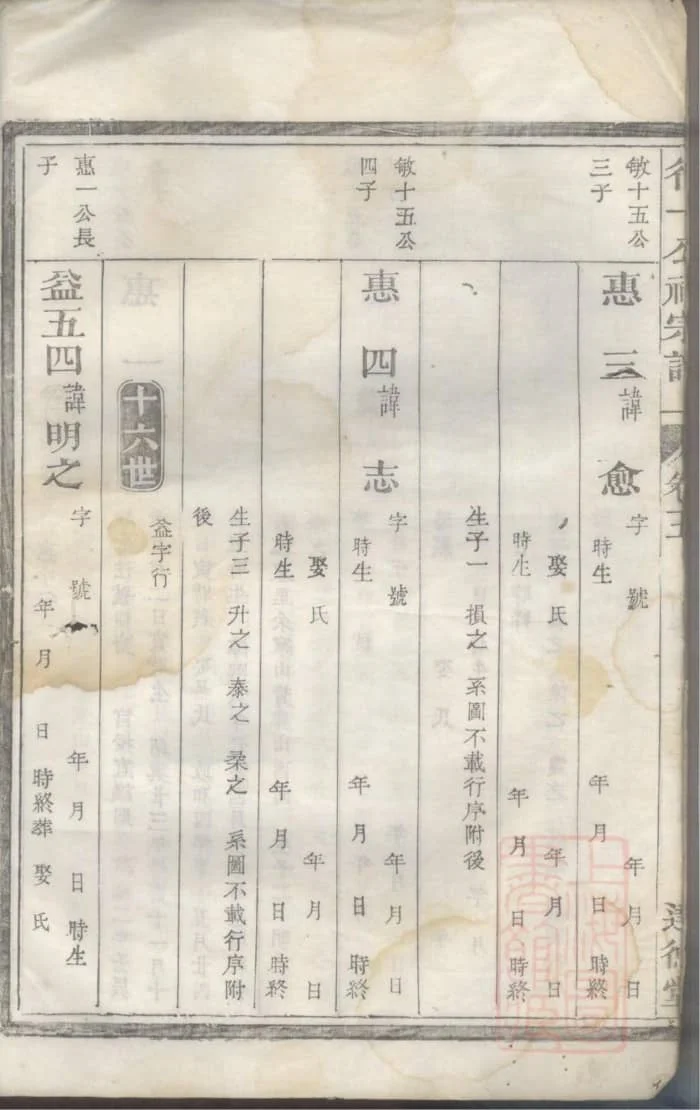 宗譜
卷五
敏十五公
三子
惠三諱愈字 號 年 月 日
時生 年 月 日 時終
娶氏 年 月 日
時生 年 月 日 時終
生子一 損之 系圖不載行序附後
敏十五公
四子
惠四諱志字 號 年 月 日
時生 年 月 日 時終
娶氏 年 月 日
時生 年 月 日 時終
生子三 升之 泰之 柔之 系圖不載行序附
後
十六世
益字行
惠一公長
子
益五四諱明之字 號 年 月 日 時生
年 月 日 時終葬 娶氏